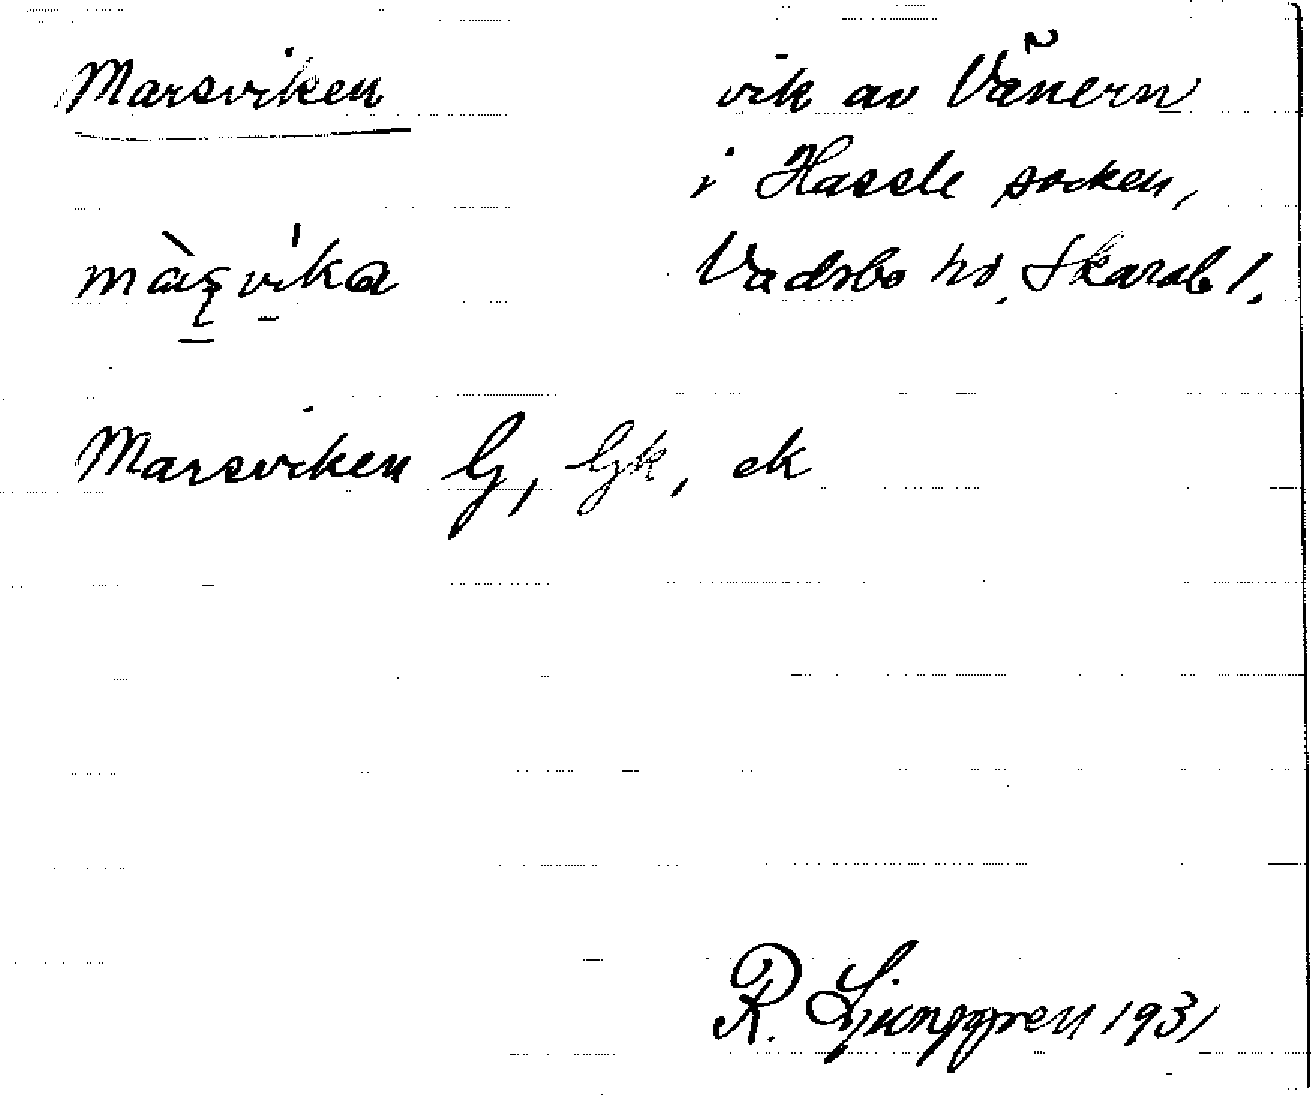 Marsviken
vik av Vänern
i Hassle socken,
Vadsbo hd. Skarab l.
màʂvika
Marsviken G, Gk, ek
R. Ljunggren 1931